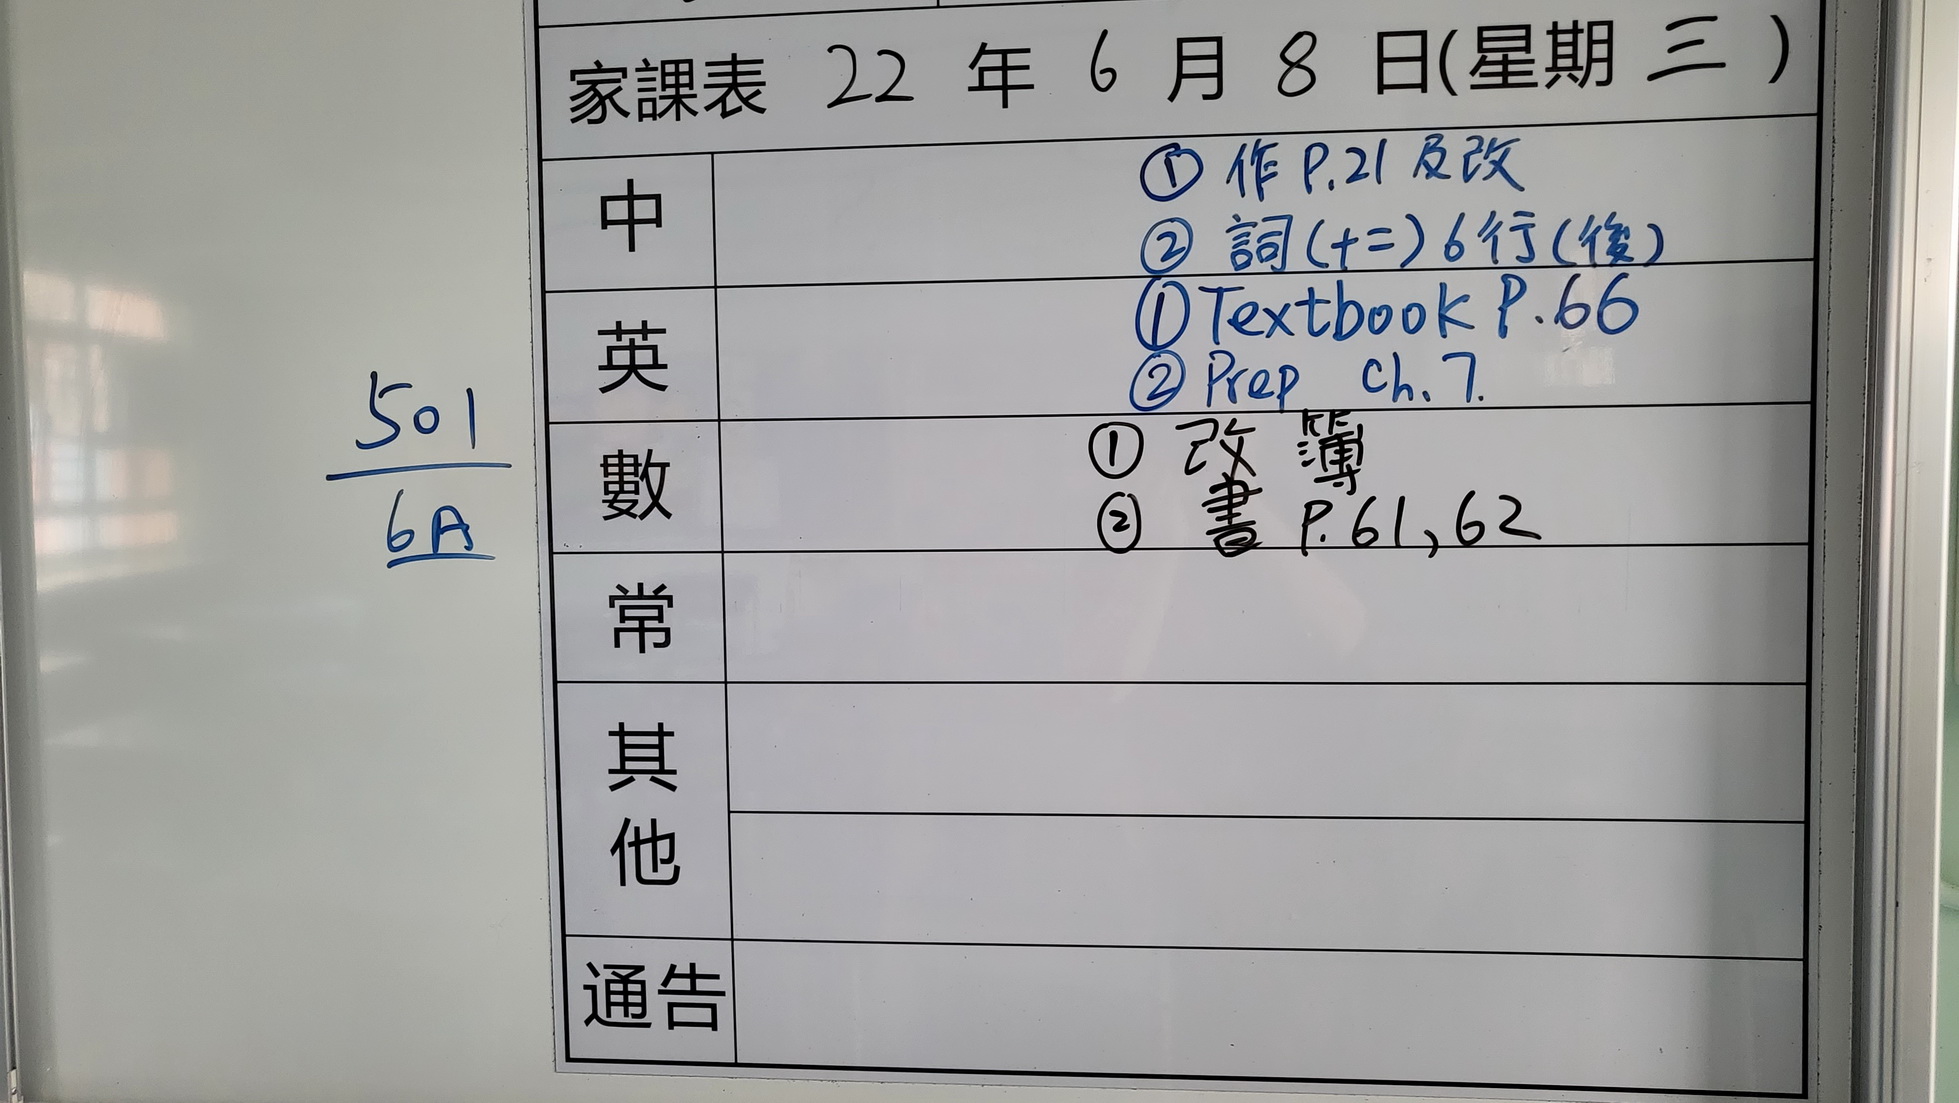 家課表 22 年 6 月 8 日(星期 三 )
中
① 作 P.21 及改
② 詞(十二) 6行(後)
英
① Textbook P.66
② Prep Ch.7.
數
① 改 簿
② 書 P.61, 62
常
其他
通告
501
6A